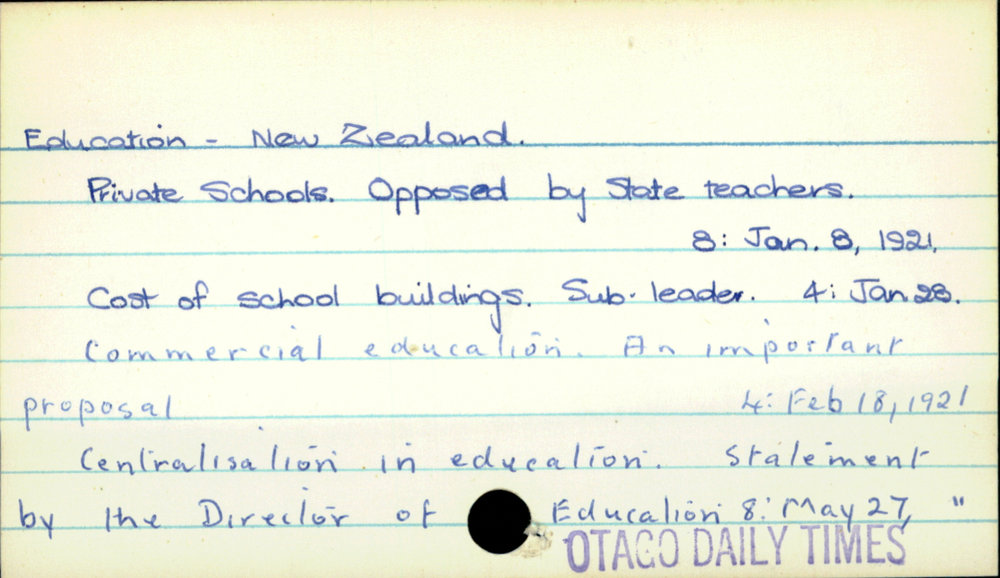 Education - New Zealand.
Private Schools. Opposed by State teachers.
8: Jan. 8, 1921.
Cost of school buildings. Sub-leader. 4: Jan 28.
Commercial education. An important
proposal 4: Feb 18, 1921
Centralisation in education. Statement
by the Director of Education 8: May 27, "
OTAGO DAILY TIMES